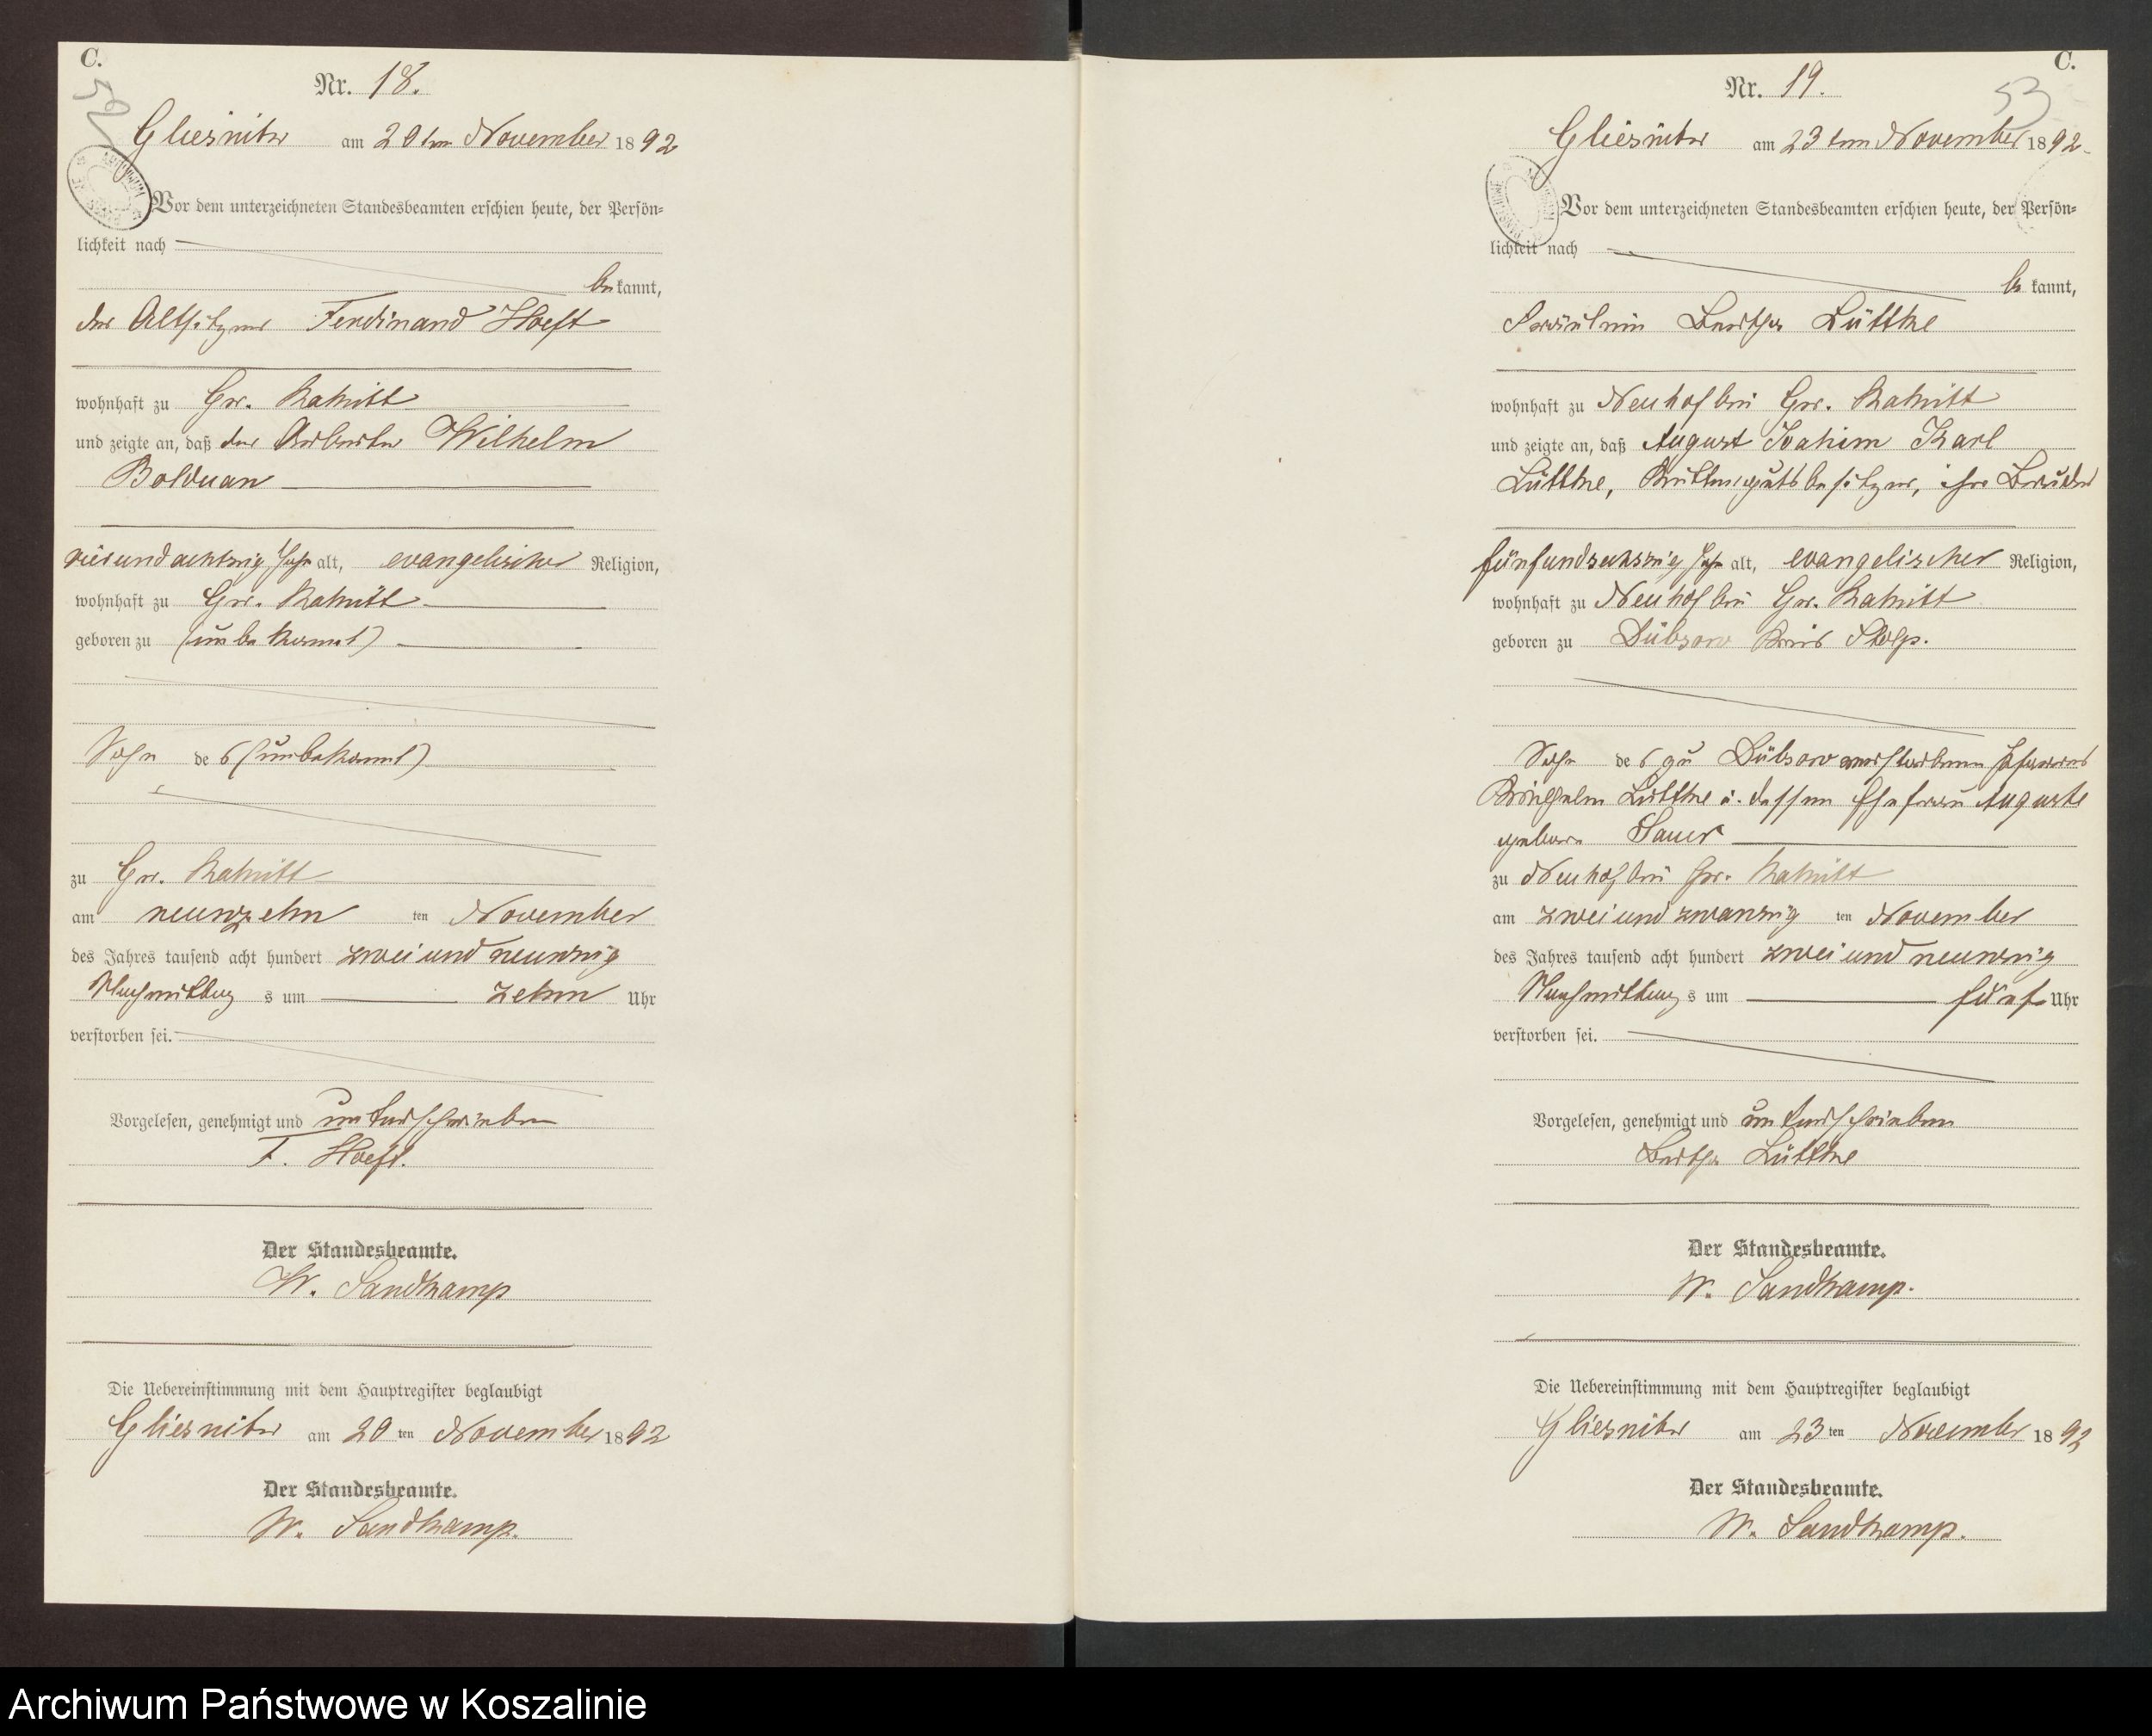 C.
52
Nr. 18.
Gliesnitz am 20ten November 1892
Vor dem unterzeichneten Standesbeamten erschien heute, der Persön-
lichkeit nach
bekannt,
der Altsitzer Ferdinand Hoeft
wohnhaft zu Gr. Rakitt
und zeigte an, daß der Arbeiter Wilhelm
Bolduan
vierundachtzig Jahr alt, evangelischer Religion,
wohnhaft zu Gr. Rakitt
geboren zu (unbekannt)
Sohn des (unbekannt)
zu Gr. Rakitt
am neunzehn ten November
des Jahres tausend acht hundert zwei und neunzig
Nachmittags um zehn Uhr
verstorben sei.
Vorgelesen, genehmigt und unterschrieben
F. Hoeft.
Der Standesbeamte.
W. Sandkamp
Die Uebereinstimmung mit dem Hauptregister beglaubigt
Gliesnitz am 20ten November 1892
Der Standesbeamte.
W. Sandkamp.
C.
53
Nr. 19.
Gliesnitz am 23ten November 1892
Vor dem unterzeichneten Standesbeamten erschien heute, der Persön-
lichkeit nach
bekannt,
Fräulein Bertha Lüttke
wohnhaft zu Neuhof bei Gr. Rakitt
und zeigte an, daß August Joakim Karl
Lüttke, Rittergutsbesitzer, ihr Bruder
fünfundsechszig Jahr alt, evangelischer Religion,
wohnhaft zu Neuhof bei Gr. Rakitt
geboren zu Dübsow Kreis Stolp.
Sohn des zu Dübsow verstorbenen Pfarrers
Lüttke u. dessen Ehefrau Auguste
geborne Sauer
zu Neuhof bei Gr. Rakitt
am zwei und zwanzig ten November
des Jahres tausend acht hundert zwei und neunzig
Nachmittags um fünf Uhr
verstorben sei.
Vorgelesen, genehmigt und unterschrieben
Bertha Lüttke
Der Standesbeamte.
W. Sandkamp.
Die Uebereinstimmung mit dem Hauptregister beglaubigt
Gliesnitz am 23ten November 1892
Der Standesbeamte.
W. Sandkamp.
Archiwum Państwowe w Koszalinie